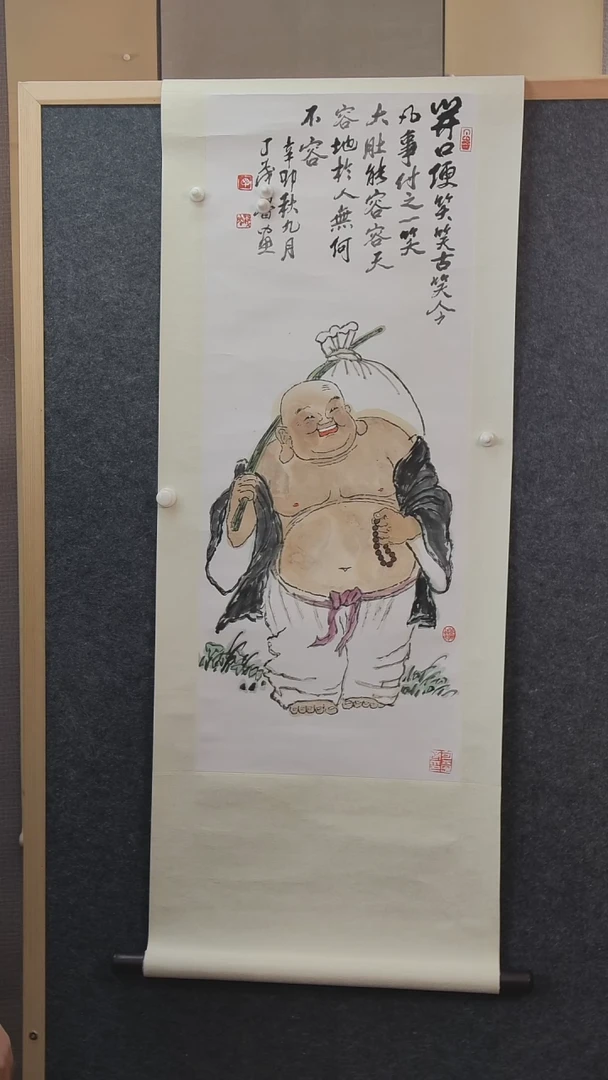 開口便笑笑古笑今
凡事付之一笑
大肚能容容天
容地於人無何
不容
辛卯秋九月
丁茂 畫